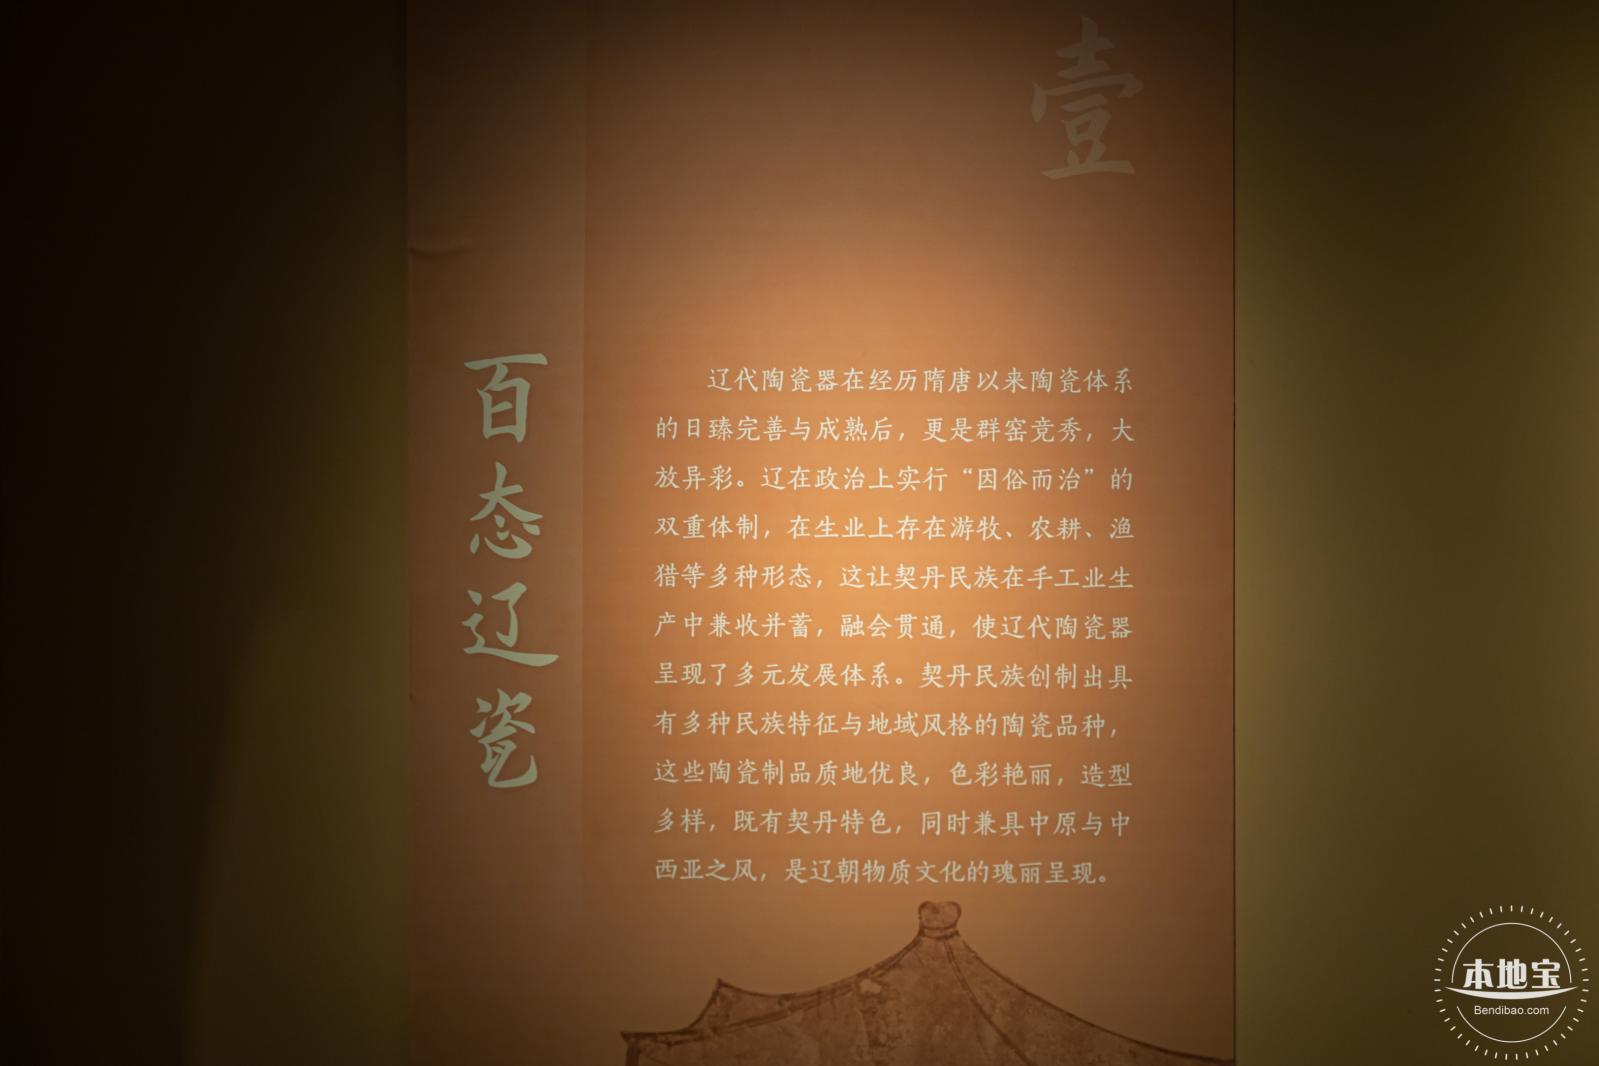 壹
百态辽瓷
辽代陶瓷器在经历隋唐以来陶瓷体系
的日臻完善与成熟后，更是群窑竞秀，大
放异彩。辽在政治上实行“因俗而治”的
双重体制，在生业上存在游牧、农耕、渔
猎等多种形态，这让契丹民族在手工业生
产中兼收并蓄，融会贯通，使辽代陶瓷器
呈现了多元发展体系。契丹民族创制出具
有多种民族特征与地域风格的陶瓷品种，
这些陶瓷制品质地优良，色彩艳丽，造型
多样，既有契丹特色，同时兼具中原与中
西亚之风，是辽朝物质文化的瑰丽呈现。
本地宝
Bendibao.com